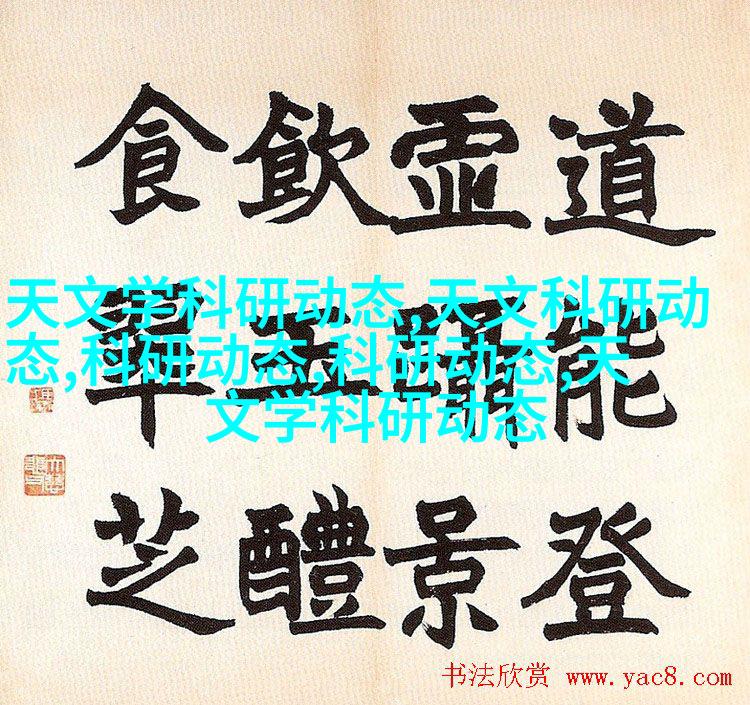 道能登
虛景
飲玉醴
食芝
天文学科研动态,天文科研动
态,科研动态,科研动态,天
文学科研动态
书法欣赏 www.yac8.com